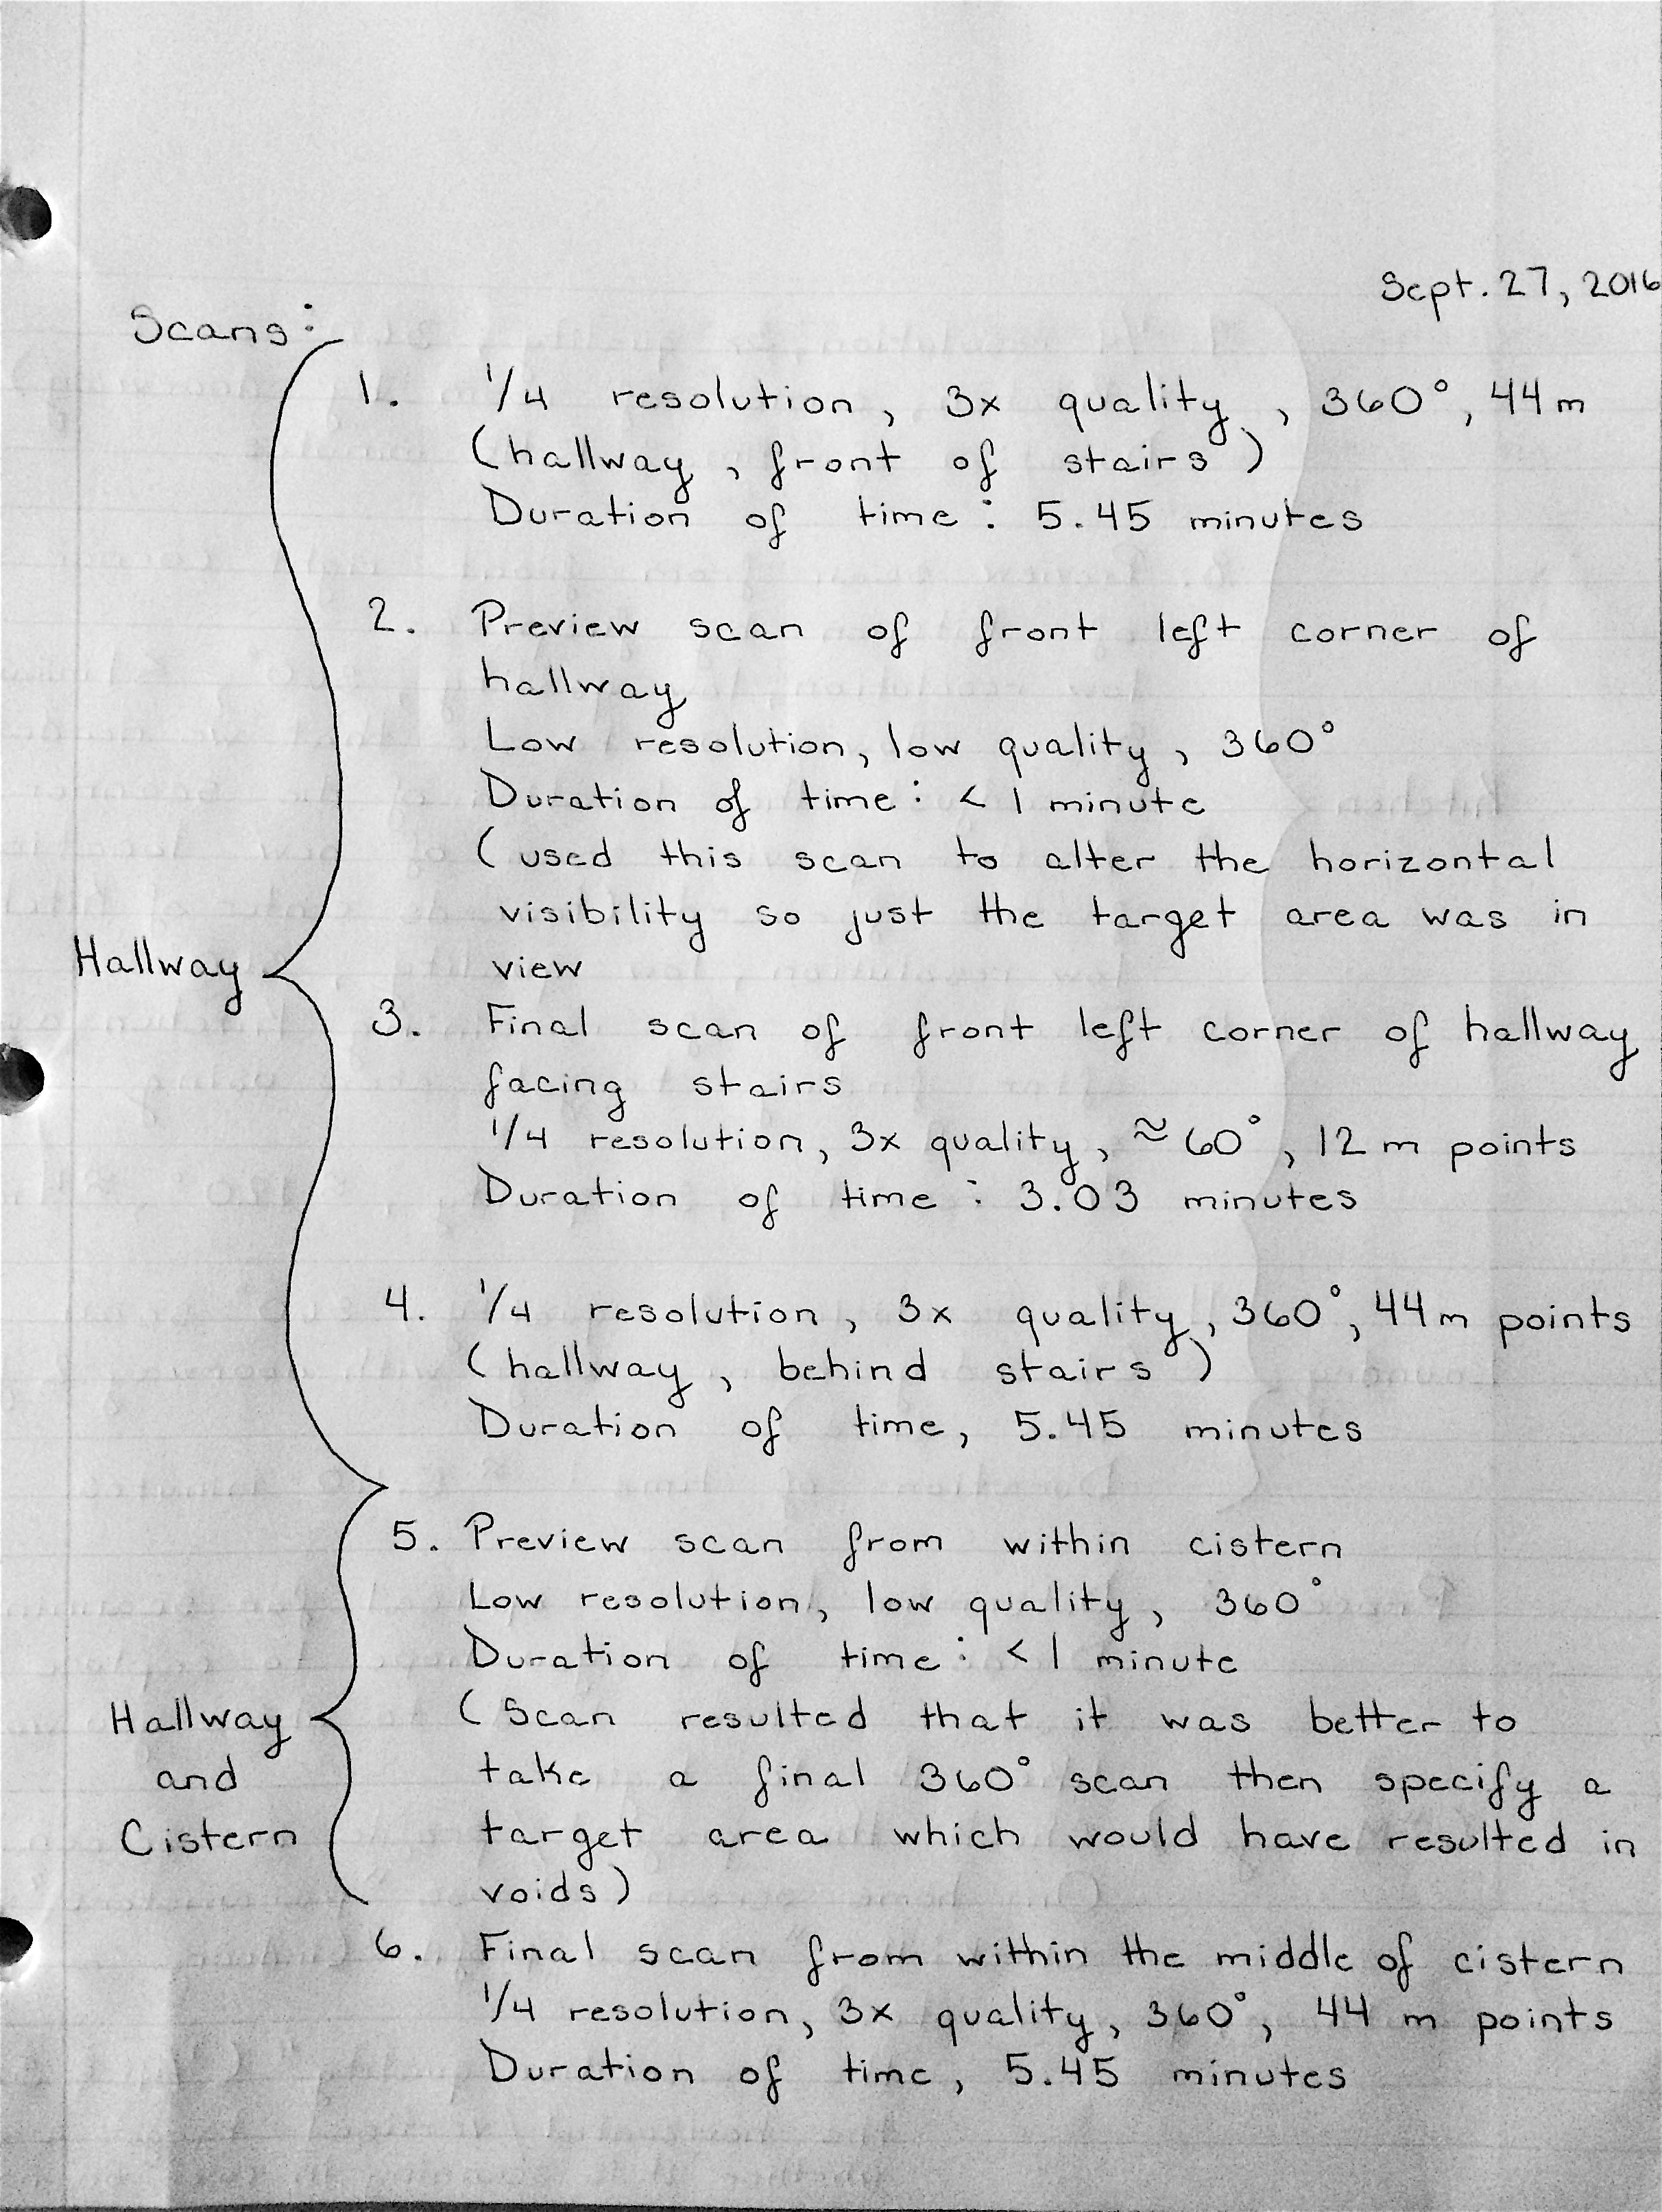 Sept. 27, 2016
Scans:
1. 1/4 resolution, 3x quality, 360°, 44m
(hallway, front of stairs)
Duration of time: 5.45 minutes
2. Preview scan of front left corner of
hallway
Low resolution, low quality, 360°
Duration of time: < 1 minute
(used this scan to alter the horizontal
visibility so just the target area was in
view
Hallway
3. Final scan of front left corner of hallway
facing stairs
1/4 resolution, 3x quality, ≈60°, 12 m points
Duration of time: 3.03 minutes
4. 1/4 resolution, 3x quality, 360°, 44m points
(hallway, behind stairs)
Duration of time, 5.45 minutes
5. Preview scan from within cistern
Low resolution, low quality, 360°
Duration of time: < 1 minute
(Scan resulted that it was better to
take a final 360° scan then specify a
target area which would have resulted in
voids)
Hallway
and
Cistern
6. Final scan from within the middle of cistern
1/4 resolution, 3x quality, 360°, 44 m points
Duration of time, 5.45 minutes